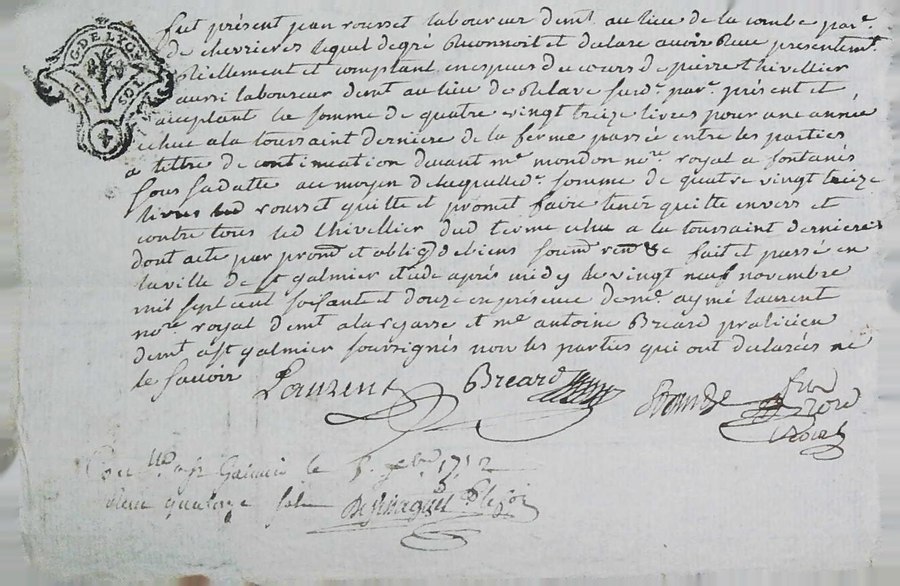 G. DE LYON
fut présent jean rousset laboureur demt. au lieu de la combe parr.
de chevrieres lequel de gré Reconnoit et declare avoir Receu presentemt.
Réellement et comptant en especes du cours de pierre thivellier
aussi laboureur demt au lieu de susd. parr. present et
acceptant la somme de quatre vingt treize livres pour une année
echue a la toussaint derniere de la ferme passée entre les parties
a tittre de continuation devant me. mondon nore. royal a fontanès
sous sa datte au moyen de laquelle d. somme de quatre vingt treize
livres led rousset quitte et promet faire tenir quitte envers et
contre tous led thivellier dud terme echu a la toussaint derniere
dont acte par prom et oblig de biens soum ren &c fait et passé en
la ville de st galmier etude après midy le vingt neuf novembre
mil sept cent soixante et douze en présence de me. aymé laurent
nore royal demt a et me antoine Breard praticien
demt a st galmier soussignés non les parties qui ont declarés ne
le savoir Laurent Breard
Con lle a st Galmier le 1772
quatorze sols